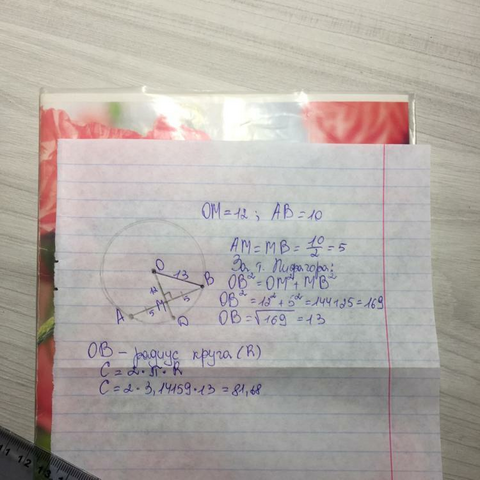 OM = 12 ; AB = 10
AM = MB = 10/2 = 5
За т. Пифагора:
OB² = OM² + MB²
OB² = 12² + 5² = 144+25 = 169
OB = √169 = 13
O
13
12
B
M
5
A
5
D
OB - радиус круга (R)
C = 2 · π · R
C = 2 · 3,14159 · 13 = 81,68
11 12 13